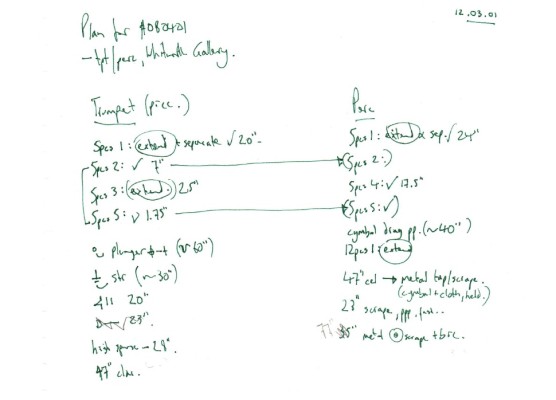 12.03.01
Plan for #080401
- tpt/perc, Whitworth Gallery.
Trumpet (picc.)
5pcs 1: extend + separate √ 20".
5pcs 2: √ 7"
5pcs 3: (extend.) 25"
5pcs 5: √ 1.75"
plunger (~60")
str (~30")
20"
23".
high - 29".
47"
Perc
5pcs 1: extend & sep. √ 24"
(5pcs 2:)
5pcs 4: √ 17.5"
(5pcs 5: √)
cymbal drag pp. (~40")
12pcs 1: extend
47" cel → metal tap/scrape.
(cymbal + cloth, held.)
23" scrape, ppp. fast..
77" metal scrape +